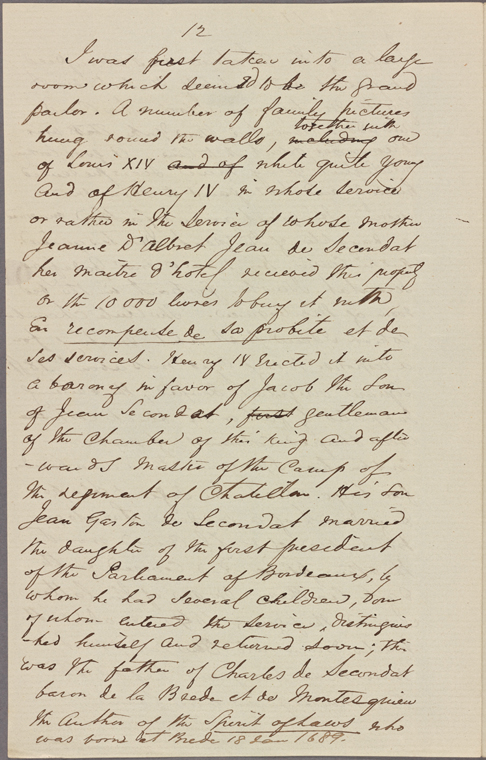 12
I was first taken into a large
room which seemed to be the grand
parlor. A number of family pictures
hung round the walls, including together with one
of Louis XIV and of while quite young
and of Henry IV in whose service
or rather in the service of whose mother
Jeanne D'Albret Jean de Secondat
her maitre d'hotel recieved this property
or the 10 000 livres to buy it with,
En recompense de sa probite et de
ses services. Henry IV erected it into
a barony in favor of Jacob the son
of Jean Secondat, first gentleman
of the Chamber of this king and after
-wards Master of the Camp of
the regiment of Chatillon. His son
Jean Gaston de Secondat married
the daughter of the first president
of the Parliament of Bordeaux, by
whom he had several children, one
of whom entered the service, distinguis
-hed himself and returned soon; this
was the father of Charles de Secondat
baron de la Brede et de Montesquieu
the Author of the Spirit of Laws who
was born at Brede 18 Jan 1689.